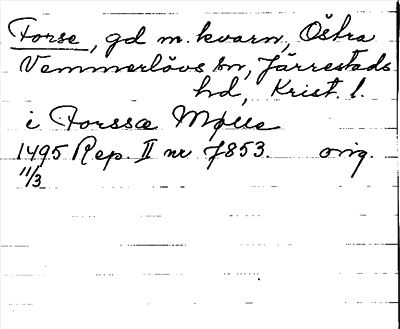 Forse, gd m. kvarn, Östra
Vemmerlövs sn, Järrestads
hd, Krist. l.
i Forssæ Mølle
1495 Rep. II nr 7853. orig.
11/3